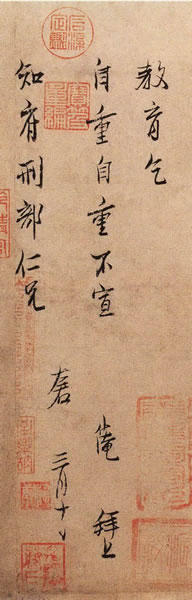 教育乞
自重自重不宣 仲淹 拜上
知府刑部仁兄 左右 三月十日